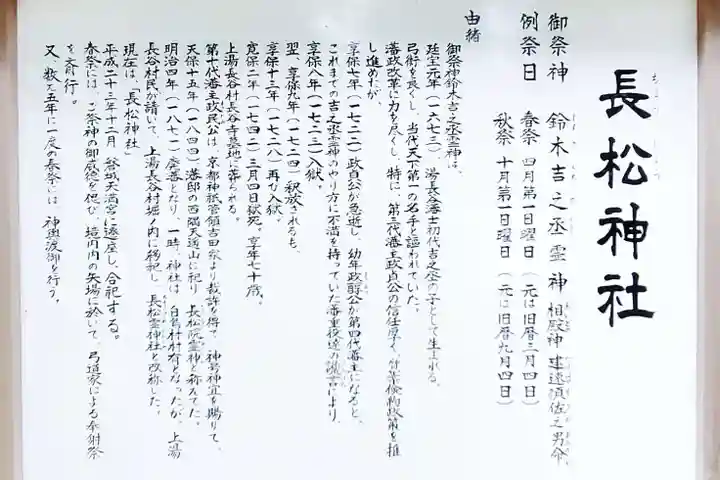 長松神社
御祭神 鈴木吉之丞霊神 相殿神 建速須佐之男命
例祭日 春祭 四月第一日曜日(元は旧暦三月四日)
秋祭 十月第一日曜日(元は旧暦九月四日)
由緒
御祭神鈴木吉之丞霊神は、
延宝元年(一六七三)、湯長谷藩士初代吉之丞の子として生まれる。
弓術を良くし、当代天下第一の名手と謳われていた。
藩政改革に力を尽くし、特に、第三代藩主政貞公の信任厚く、倹約政策を推
し進めたが、
享保七年(一七二二)政貞公が急逝し、幼年政醇公が第四代藩主になると、
これまでの吉之丞霊神のやり方に不満を持っていた藩重役達の讒言により、
享保八年(一七二三)入獄。
翌、享保九年(一七二四)釈放されるも、
享保十三年(一七二八)再び入獄。
寛保二年(一七四二)三月四日獄死。享年七十歳。
上湯長谷村長谷寺墓地に葬られる。
第十代藩主政民公は、京都神祇管領吉田家より裁許を得て、神号神宣を賜りて、
天保十五年(一八四四)藩邸の西隅天遥山に祀り、長松院霊神と称えてた。
明治四年(一八七一)廃藩となり、一時、神社は、白鳥村村有となったが、上湯
長谷村民が請いて、上湯長谷村堀ノ内に移祀し、長松霊神社と改称した。
現在は、「長松神社」
平成二十三年十二月、磐城天満宮に遷座し、合祀する。
春祭には、ご祭神の御威徳を偲び、境内内の矢場に於いて、弓道家による奉射祭
を斎行。
又、数え五年に一度の春祭には、神輿渡御を行う。